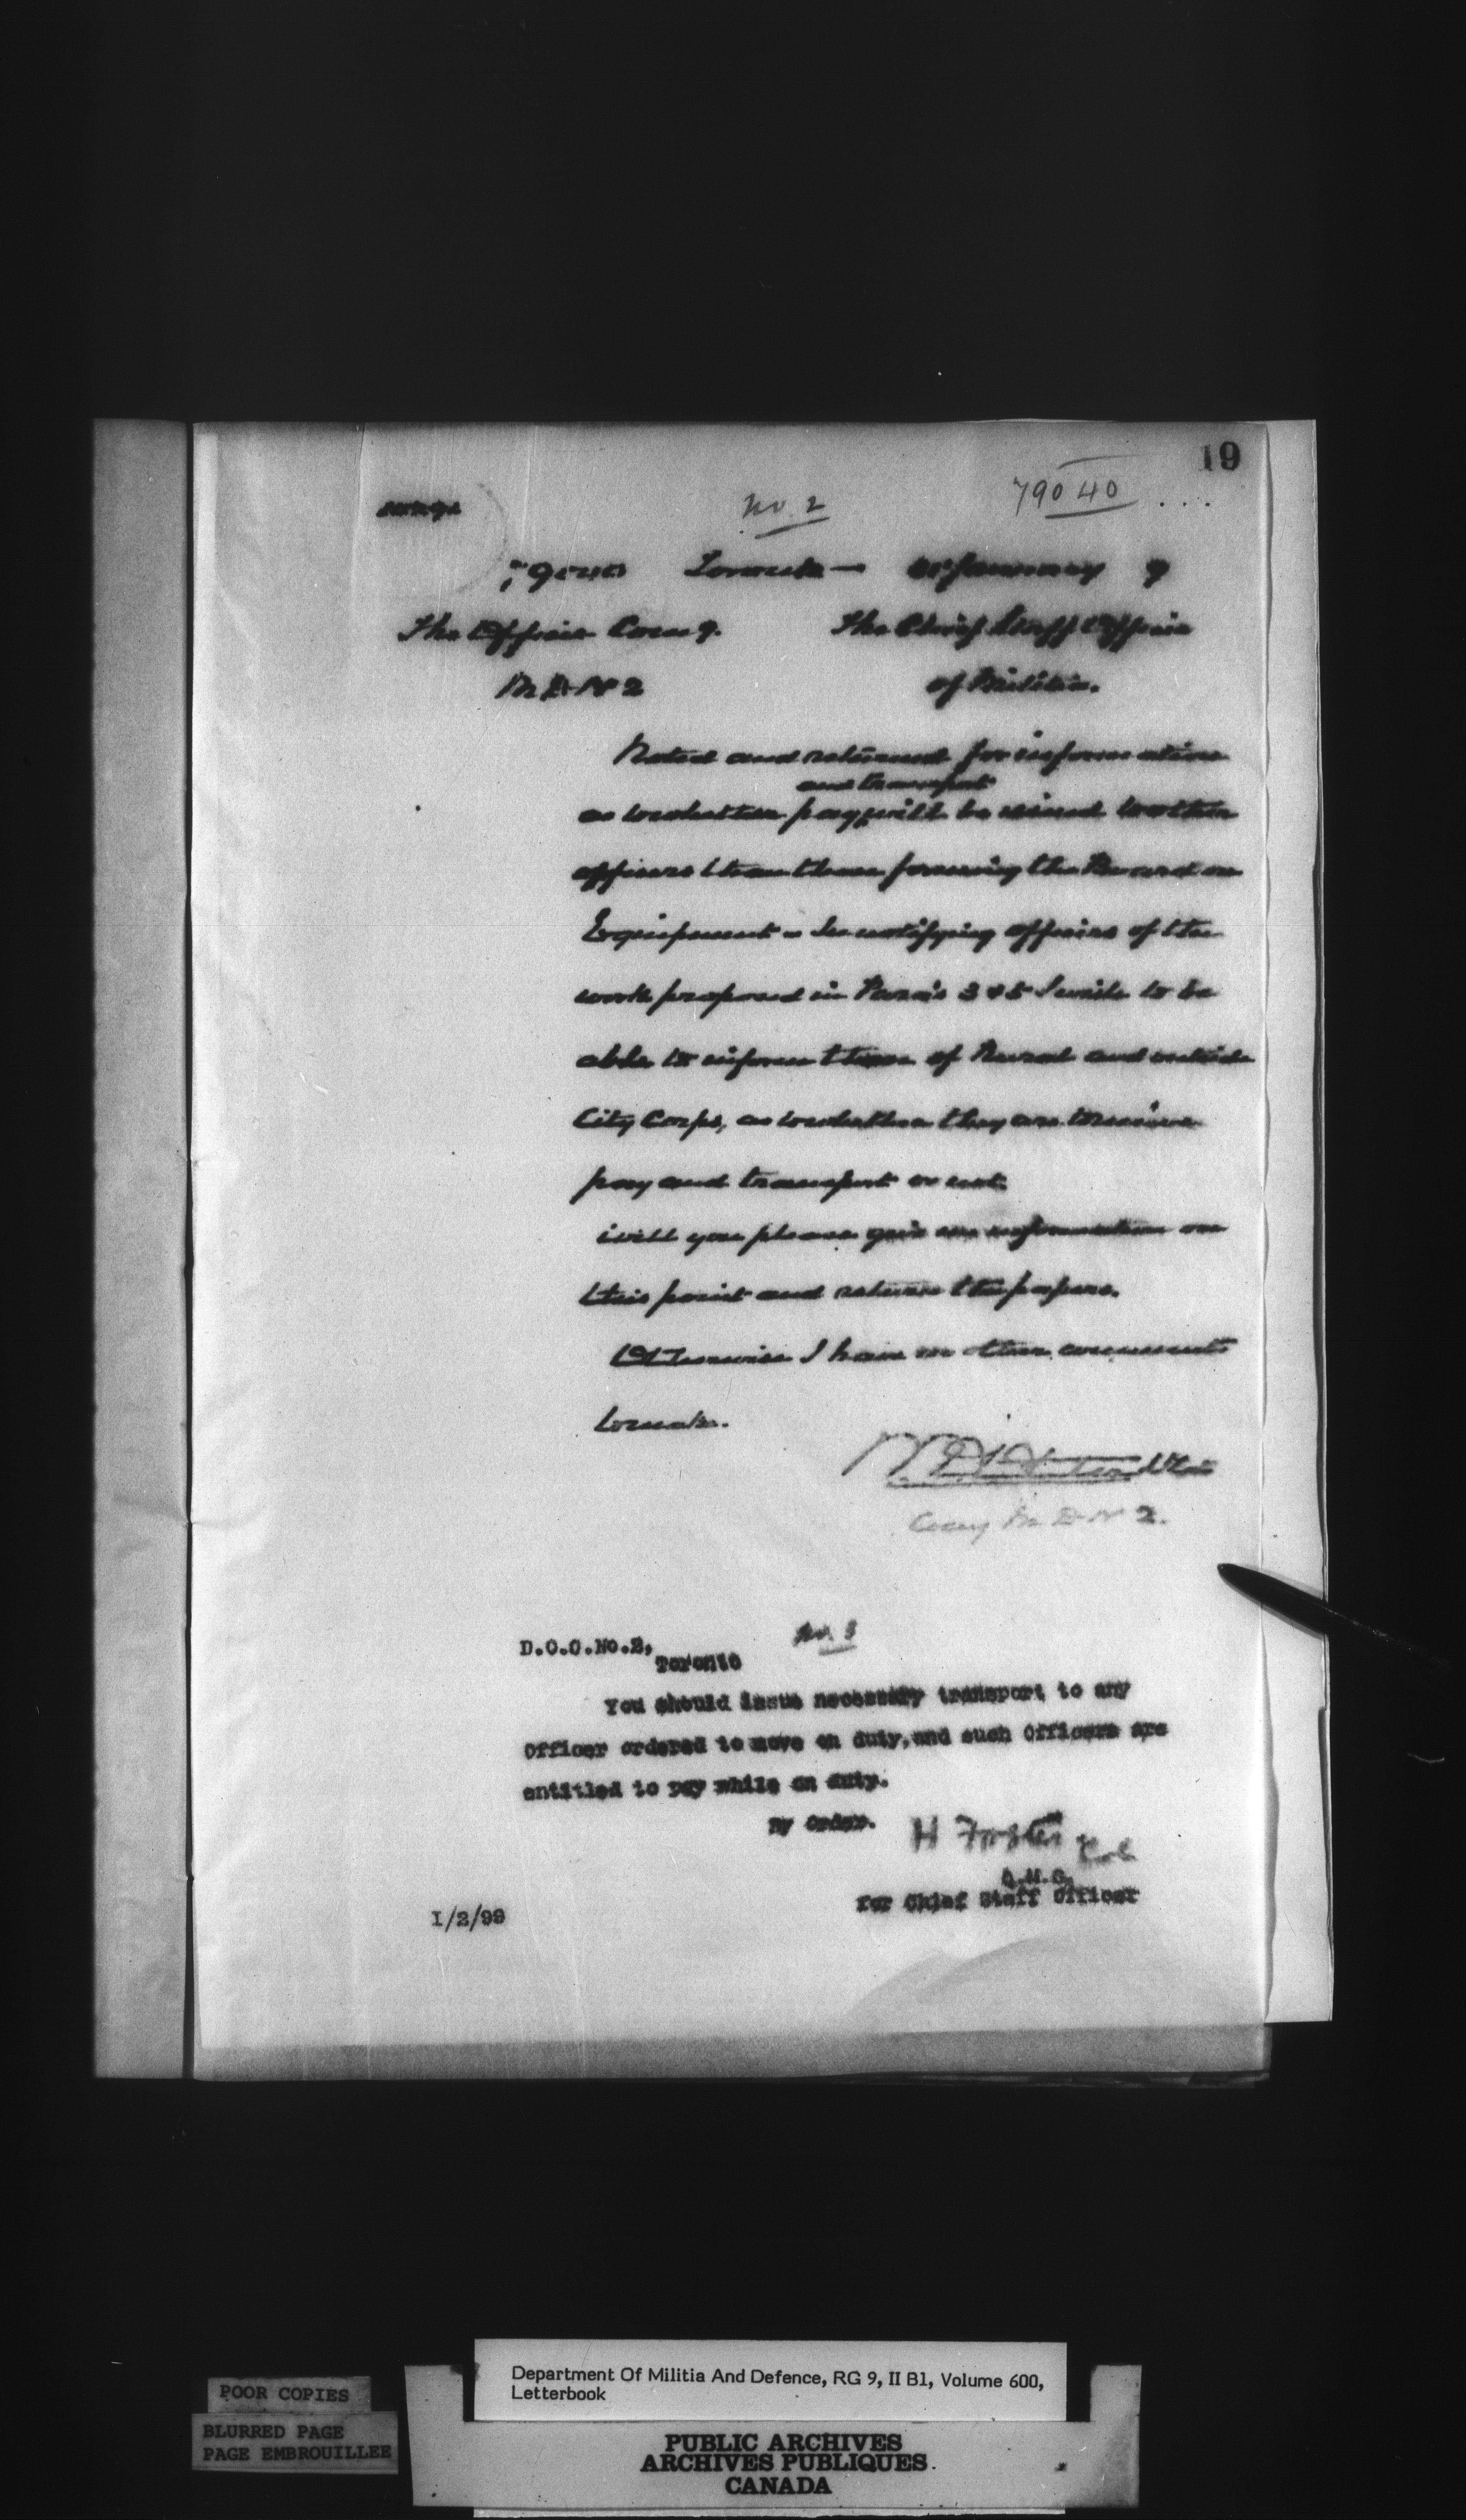 19
No 2
79040
79040 Toronto — January 9
The Officer Comg. The Chief Staff Officer
M D No 2 of Militia.
Noted and returned for information
and transport
as to whether pay will be issued to other
officers than those forming the Board on
Equipment - In notifying officers of the
work proposed in Para's 3 & 5 I wish to be
able to inform those of Rural and outside
City Corps, as to whether they are to receive
pay and transport or not.
Will you please give me information on
this point and return the papers.
Otherwise I have no other comments
to make.
Comg M D No 2.
No. 3
D.O.C.No.2,
Toronto
You should issue necessary transport to any
Officer ordered to move on duty, and such Officers are
entitled to pay while on duty.
By Order.
H Foster Col
Q.M.G.
for Chief Staff Officer
1/2/99
Department Of Militia And Defence, RG 9, II B1, Volume 600,
Letterbook
POOR COPIES
BLURRED PAGE
PAGE EMBROUILLEE
PUBLIC ARCHIVES
ARCHIVES PUBLIQUES
CANADA